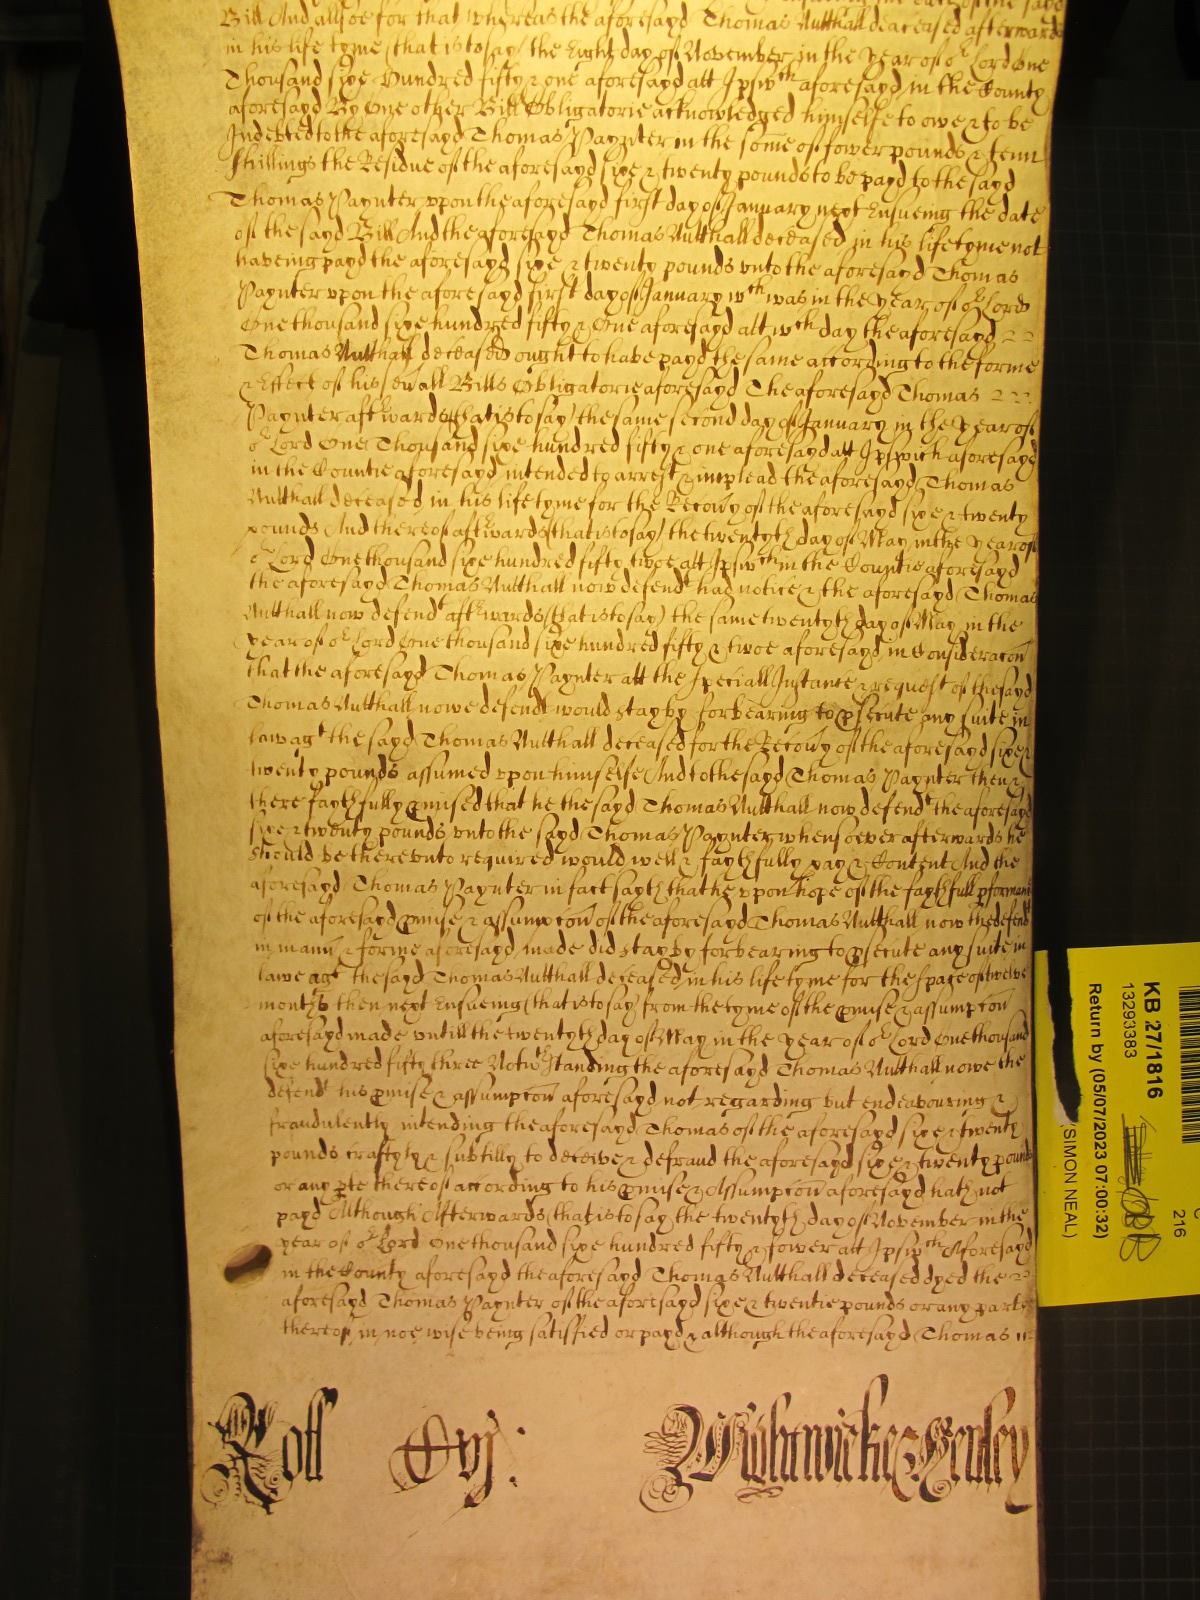 Bill And allsoe for that whereas the aforesayd Thomas Nutthall deceased afterwards
in his life tyme (that is to say) the Eight day of November in the year of or Lord One
Thousand sixe Hundred fifty & one aforesayd att Ipswth aforesayd in the County
aforesayd By One other Bill Obligatorie acknowledged himselfe to owe & to be
Indebted to the aforesayd Thomas Paynter in the some of fower pounds & tenn
shillings the Residue of the aforesayd sixe & twenty pounds to be payd to the sayd
Thomas Paynter upon the aforesayd first day of January next Ensueing the date
of the sayd Bill And the aforesayd Thomas Nutthall deceased in his life tyme not
haveing payd the aforesayd sixe & twenty pounds unto the aforesayd Thomas
Paynter upon the aforesayd first day of January wch was in the year of or Lord
One thousand sixe hundred fifty & One aforesayd att wch day the aforesayd
Thomas Nutthall deceased ought to have payd the same according to the forme
& Effect of his sevall Bills Obligatorie aforesayd The aforesayd Thomas
Paynter aftwards (that is to say) the same second day of January in the year of
or Lord One Thousand sixe hundred fifty & one aforesayd att Ipswich aforesayd
in the Countie aforesayd intended to arrest & implead the aforesayd Thomas
Nutthall deceased in his life tyme for the Recovy of the aforesayd sixe & twenty
pounds And thereof aftwards (that is to say) the twentyth day of May in the year of
or Lord One thousand sixe hundred fifty twoe att Ipswth in the Countie aforesayd
the aforesayd Thomas Nutthall now defendt had notice & the aforesayd Thomas
Nutthall now defendt aftwards (that is to say) the same twentyth day of May in the
year of or Lord One thousand sixe hundred fifty & twoe aforesayd in Consideracon
that the aforesayd Thomas Paynter att the speciall Instance & request of the sayd
Thomas Nutthall nowe defendt would stay by forbearing to psecute any suite in
law agt the sayd Thomas Nutthall deceased for the Recovy of the aforesayd sixe &
twenty pounds assumed upon himselfe And to the sayd Thomas Paynter then &
there faythfully pmised that he the sayd Thomas Nutthall now defendt the aforesayd
sixe & twenty pounds unto the sayd Thomas Paynter whensoever afterwards he
should be thereunto required would well & faythfully pay & Content And the
aforesayd Thomas Paynter in fact sayth that he upon hope of the faythfull pformance
of the aforesayd pmise & assumpcon of the aforesayd Thomas Nutthall now the defendt
in mann & forme aforesayd made did stay by forbearing to psecute any suite in
lawe agt the sayd Thomas Nutthall deceased in his life tyme for the space of twelve
months then next Ensueing (that is to say) from the tyme of the pmise & assumpcon
aforesayd made untill the twentyth day of May in the year of or Lord One thousand
sixe hundred fifty three Notwthstanding the aforesayd Thomas Nutthall nowe the
defendt his pmise & assumpcon aforesayd not regarding but endeavouring &
fraudulently intending the aforesayd Thomas of the aforesayd sixe & twenty
pounds craftyly & subtilly to deceive & defraud the aforesayd sixe & twenty pounds
or any pte thereof according to his pmise & Assumpcon aforesayd hath not
payd Although Afterwards (that is to say) the twentyth day of November in the
year of or Lord One thousand sixe hundred fifty & fower att Ipswth Aforesayd
in the County aforesayd the aforesayd Thomas Nutthall deceased dyed the
aforesayd Thomas Paynter of the aforesayd sixe & twentie pounds or any parte
thereof in noe wise being satisfied or payd & although the aforesayd Thomas
Roll Cvj: Wightwicke & Henley
KB 27/1816
13293383
Return by (05/07/2023 07:00:32)
(SIMON NEAL)
216